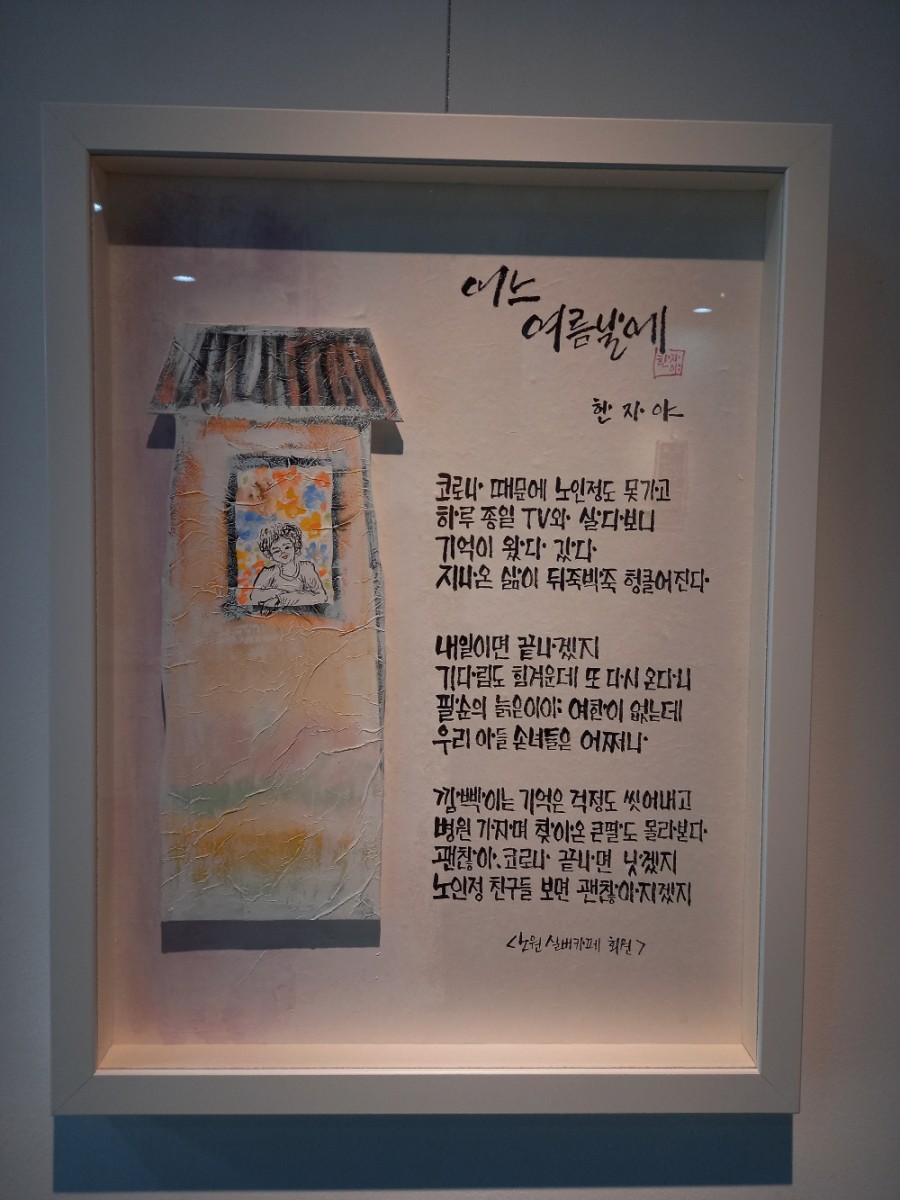 어느
여름날에
한자야
한 자 야
코로나 때문에 노인정도 못가고
하루 종일 TV와 살다보니
기억이 왔다 갔다
지나온 삶이 뒤죽박죽 헝클어진다
내일이면 끝나겠지
기다림도 힘겨운데 또 다시 온다니
필순의 늙은이야 여한이 없는데
우리 아들 손녀들은 어쩌나
깜빡이는 기억은 걱정도 씻어내고
병원 가자며 찾아온 큰딸도 몰라본다
괜찮아. 코로나 끝나면 낫겠지
노인정 친구들 보면 괜찮아지겠지
<노원 실버카페 회원>